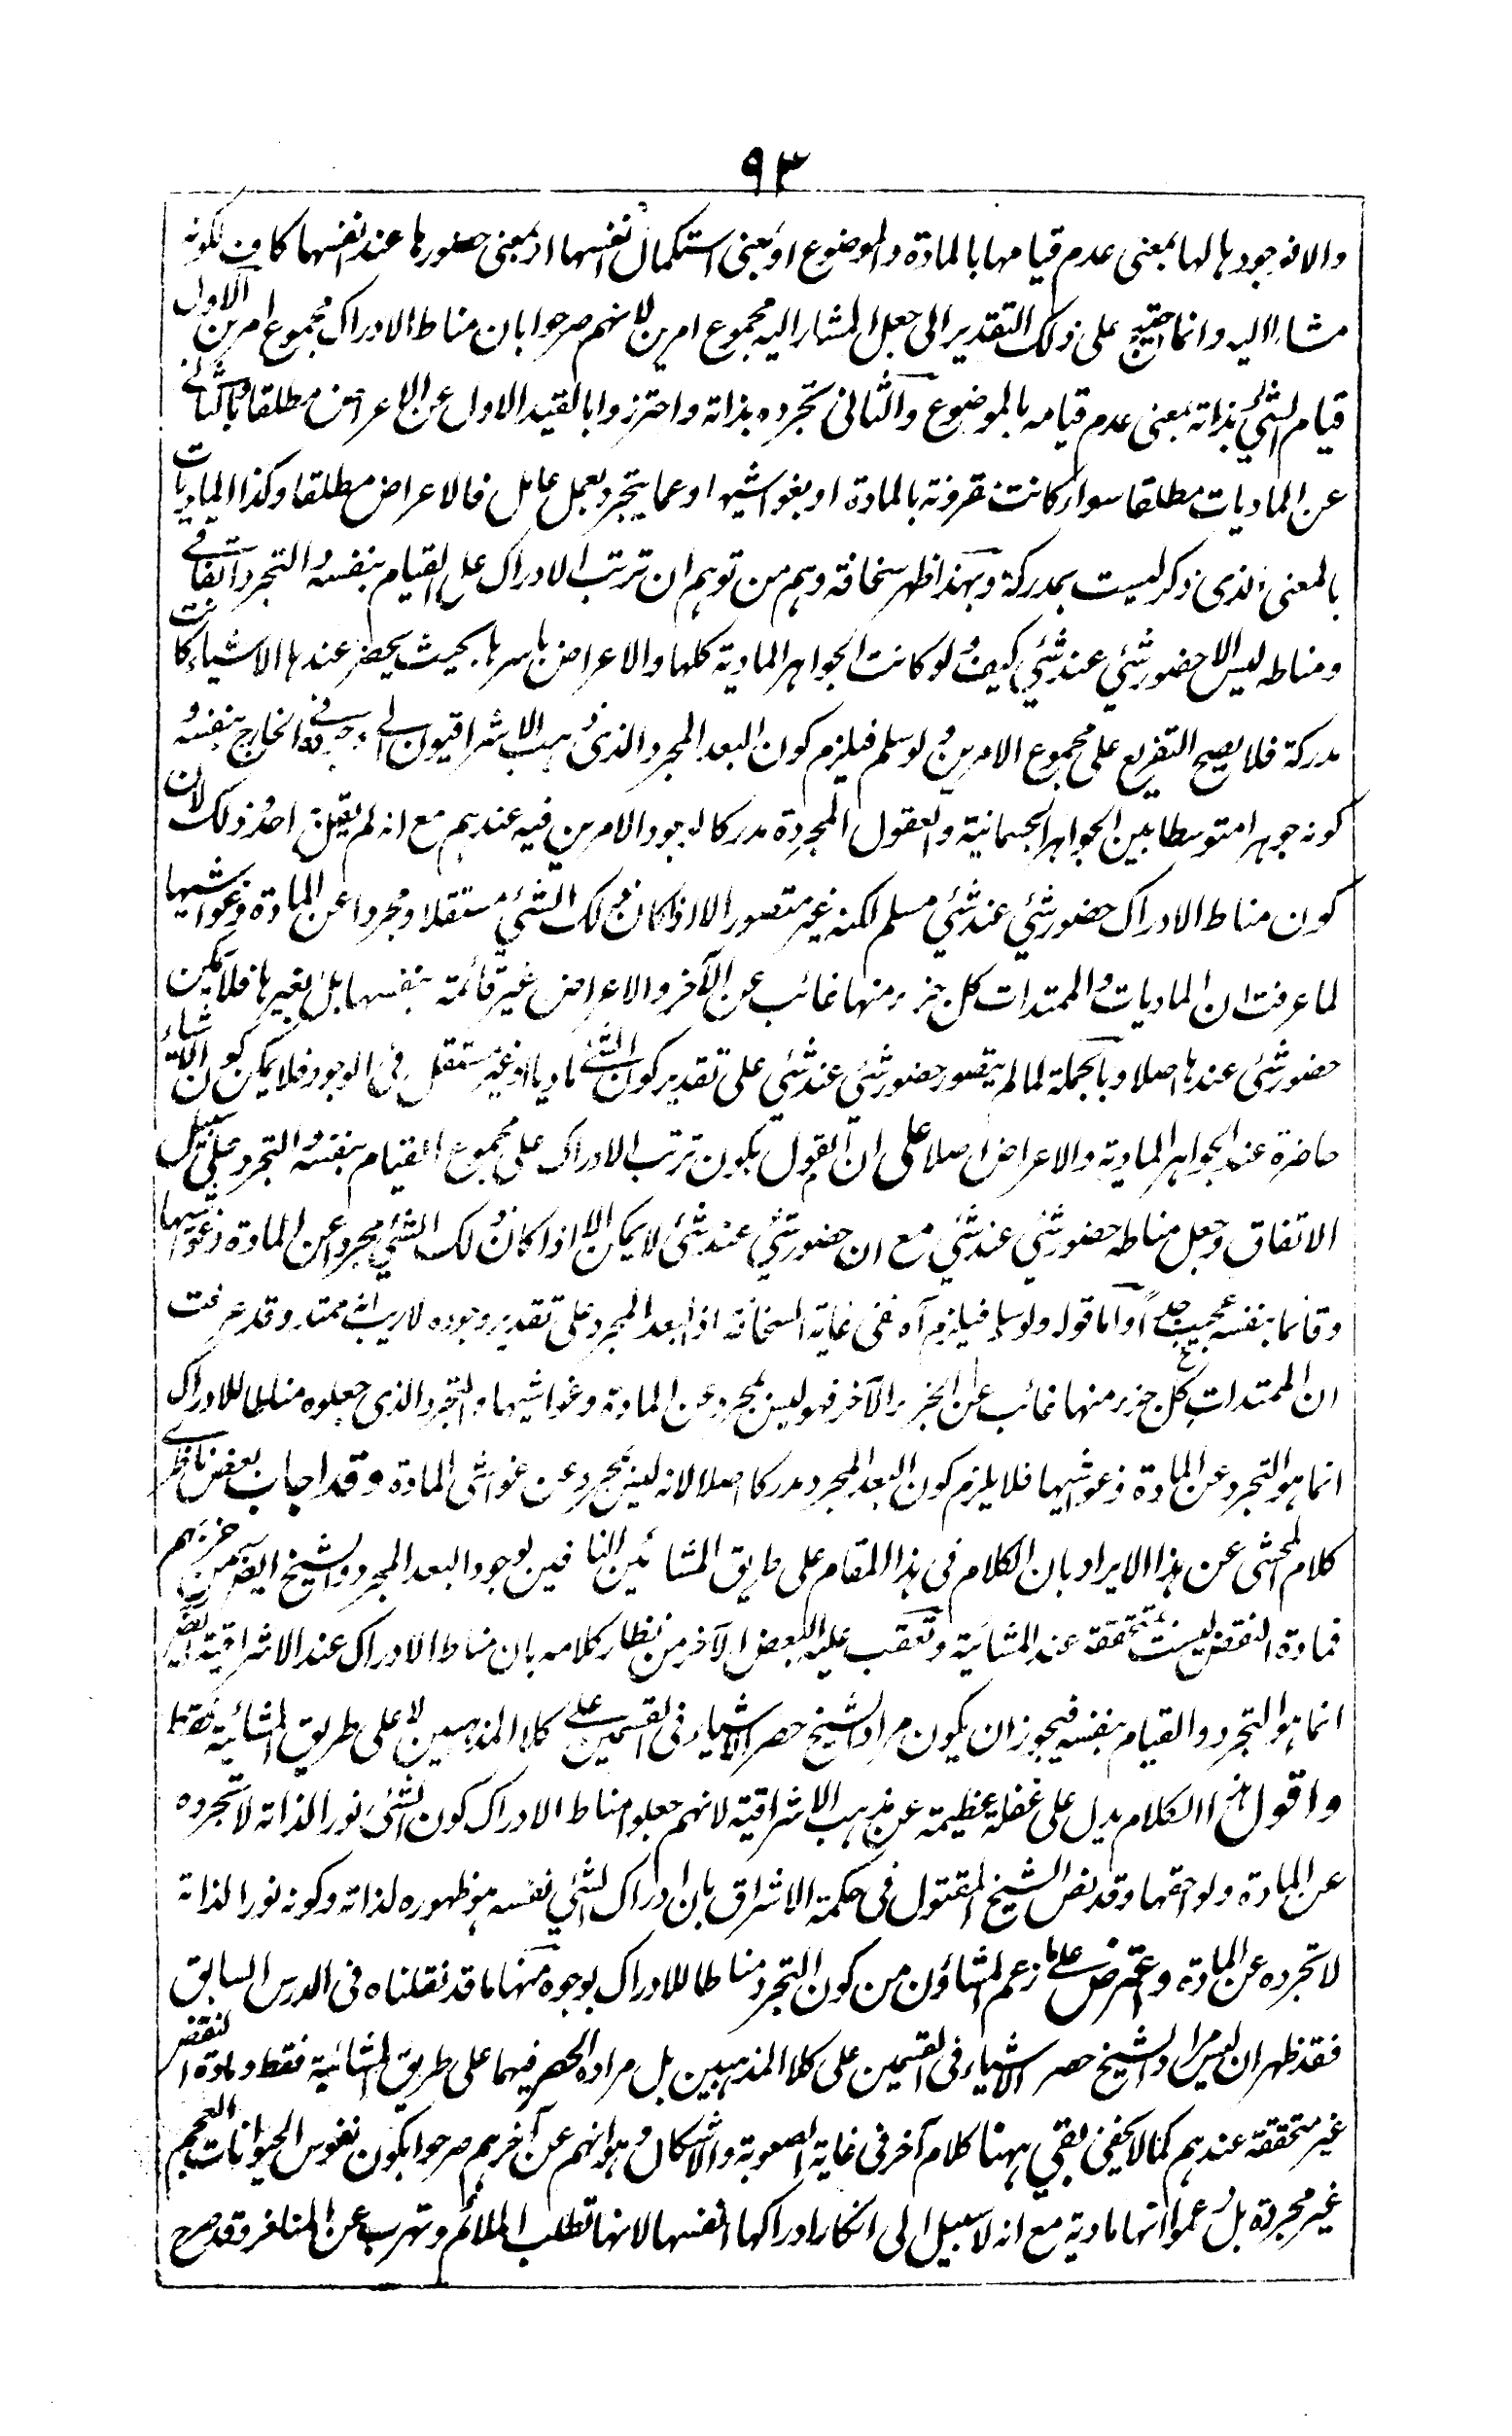 ٩٣
والا فوجودها لها بمعنى عدم قيامها بالمادة والموضوع او بمعنى استكمال نفسها او بمعنى حضورها عند نفسها كاف لكونه
مشارا اليه وانما احتيج على ذلك التقدير الى جعل المشار اليه مجموع امرين لانهم صرحوا بان مناط الادراك مجموع امرين الاول
قيام الشئ بذاته بمعنى عدم قيامه بالموضوع والثانى تجرده بذاته واحترزوا بالقيد الاول عن الاعراض مطلقا وبالثانى
عن الماديات مطلقا سواء كانت مقرونة بالمادة او بغواشيها او عما يتجرد بعمل عامل فالاعراض مطلقا وكذا الماديات
بالمعنى الذى ذكر ليست بمدركة وبهذا ظهر سخافة وهم من توهم ان ترتب الادراك على القيام بنفسه والتجرد اتفاقى
ومناطه ليس الا حضور شئ عند شئ كيف ولو كانت الجواهر المادية كلها والاعراض باسرها بحيث يحضر عندها الاشياء كانت
مدركة فلا يصح التفريع على مجموع الامرين ولو سلم فيلزم كون البعد المجرد الذى ذهب الاشراقيون الى وجوده فى الخارج بنفسه و
كونه جوهرا متوسطا بين الجواهر الجسمانية والعقول المجردة مدركا لوجود الامرين فيه عندهم مع انه لم يقل به احد وذلك لان
كون مناط الادراك حضور شئ عند شئ مسلم لكنه غير متصور الا اذا كان ذلك الشئ مستقلا ومجردا عن المادة وغواشيها
لما عرفت ان الماديات والممتدات كل جزء منها غائب عن الآخر والاعراض غير قائمة بنفسها بل بغيرها فلا يمكن
حضور شئ عندها اصلا وبالجملة لما لم يتصور حضور شئ عند شئ على تقدير كون الشئ ماديا او غير مستقل فى الوجود فلا يمكن كون الاشياء
حاضرة عند الجواهر المادية والاعراض اصلا على ان القول بكون ترتب الادراك على مجموع القيام بنفسه والتجرد على سبيل
الاتفاق وجعل مناطه حضور شئ عند شئ مع ان حضور شئ عند شئ لا يمكن الا اذا كان ذلك الشئ مجردا عن المادة وغواشيها
وقائما بنفسه عجيب جدا واما قوله ولو سلم فيلزم آه ففى غاية السخافة اذ البعد المجرد على تقدير وجوده لا ريب انه ممتد وقد عرفت
ان الممتدات كل جزء منها غائب عن الجزء الآخر فهو ليس بمجرد عن المادة وغواشيها والتجرد الذى جعلوه مناطا للادراك
انما هو التجرد عن المادة وغواشيها فلا يلزم كون البعد المجرد مدركا اصلا لانه ليس بمجرد عن غواشى المادة وقد اجاب بعض ناظرى
كلام المحشى عن هذا الايراد بان الكلام فى هذا المقام على طريق المشائين النافين لوجود البعد المجرد والشيخ ايضا من حزبهم
فمادة النقض ليست متحققة عند المشائية وتعقب عليه البعض الآخر من نظار كلامه بان مناط الادراك عند الاشراقية ايضا
انما هو التجرد والقيام بنفسه فيجوز ان يكون مراد الشيخ حصر الاشياء فى القسمين على كلا المذهبين لا على طريق المشائية فقط
واقول هذا الكلام يدل على غفلة عظيمة عن مذهب الاشراقية لانهم جعلوا مناط الادراك كون الشئ نورا لذاته لا تجرده
عن المادة ولواحقها وقد نص الشيخ المقتول فى حكمة الاشراق بان ادراك الشئ نفسه هو ظهوره لذاته وكونه نورا لذاته
لا تجرده عن المادة واعترض على ما زعم المشاؤن من كون التجرد مناطا للادراك بوجوه منها ما قد نقلناه فى الدرس السابق
فقد ظهر ان ليس مراد الشيخ حصر الاشياء فى القسمين على كلا المذهبين بل مراده الحصر فيهما على طريق المشائية فقط ومادة النقض
غير متحققة عندهم كما لا يخفى بقى ههنا كلام آخر فى غاية الصعوبة والاشكال وهو انهم عن آخرهم صرحوا بكون نفوس الحيوانات العجم
غير مجردة بل زعموا انها مادية مع انه لا سبيل الى انكار ادراكها انفسها لانها تطلب الملائم وتهرب عن المنافر وقد صرح